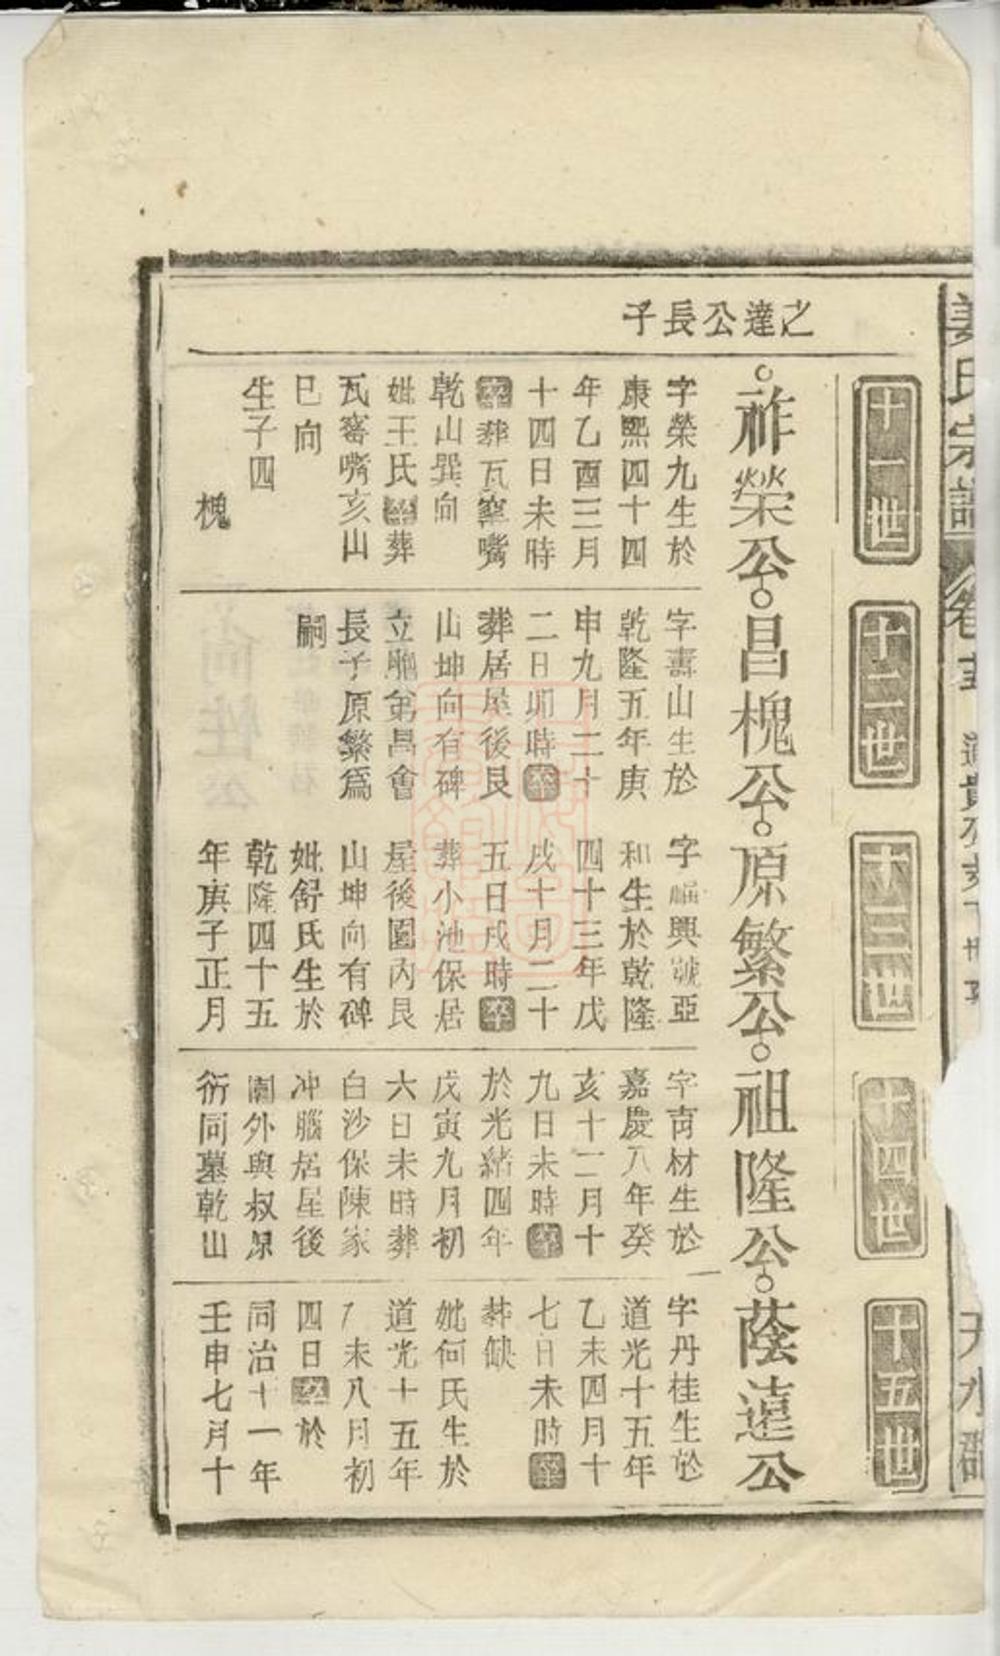 姜氏宗譜
天水郡
十一世
十二世
十三世
十四世
十五世
之達公長子
祚榮公
字榮九生於
康熙四十四
年乙酉三月
十四日未時
卒葬瓦窰嘴
乾山巽向
妣王氏卒葬
瓦窰嘴亥山
巳向
生子四
槐
昌槐公
字壽山生於
乾隆五年庚
申九月二十
二日卯時卒
葬居屋後艮
山坤向有碑
立胞弟昌會
長子原繁爲
嗣
原繁公
字 興號亞
和生於乾隆
四十三年戊
戌十月二十
五日戌時卒
葬小池保居
屋後園內艮
山坤向有碑
妣舒氏生於
乾隆四十五
年庚子正月
祖隆公
字南材生於
嘉慶八年癸
亥十二月十
九日未時卒
於光緒四年
戊寅九月初
六日未時葬
白沙保陳家
冲腦居屋後
園外與叔原
衍同墓乾山
蔭遠公
字丹桂生於
道光十五年
乙未四月十
七日未時卒
葬缺
妣何氏生於
道光十五年
乙未八月初
四日卒於
同治十一年
壬申七月十